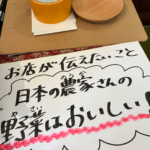 お店が伝えたいこと
日本の農家さんの
野菜はおいしい!